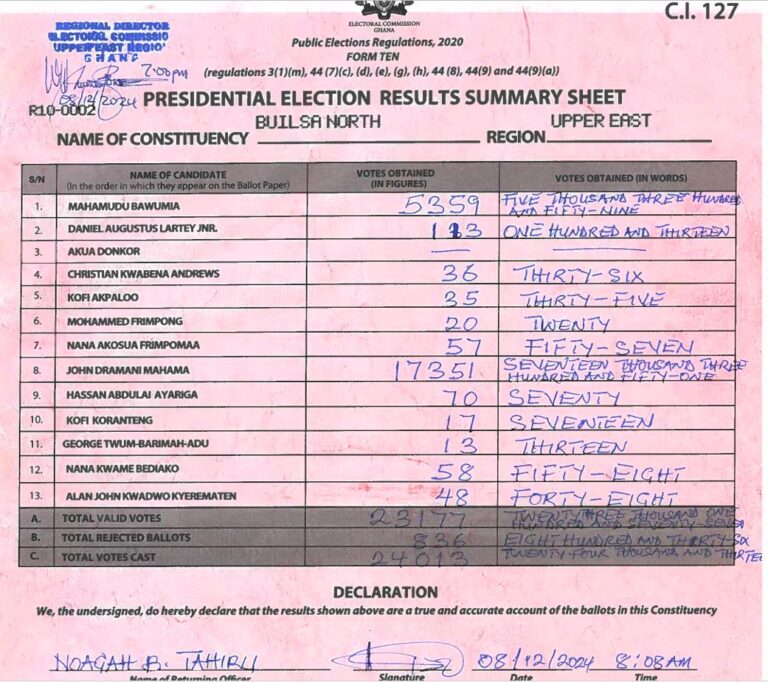 C.I. 127
ELECTORAL COMMISSION
GHANA
REGIONAL DIRECTOR
ELECTORAL COMMISSIO
UPPER EAST REGIO
GHANA
2:00pm
08/12/2024
R10-0002
Public Elections Regulations, 2020
FORM TEN
(regulations 3(1)(m), 44 (7)(c), (d), (e), (g), (h), 44 (8), 44(9) and 44(9)(a))
PRESIDENTIAL ELECTION RESULTS SUMMARY SHEET
NAME OF CONSTITUENCY BUILSA NORTH REGION UPPER EAST
S/N NAME OF CANDIDATE (In the order in which they appear on the Ballot Paper) VOTES OBTAINED (IN FIGURES) VOTES OBTAINED (IN WORDS)
1. MAHAMUDU BAWUMIA 5359 FIVE THOUSAND THREE HUNDRED AND FIFTY-NINE
2. DANIEL AUGUSTUS LARTEY JNR. 113 ONE HUNDRED AND THIRTEEN
3. AKUA DONKOR — —
4. CHRISTIAN KWABENA ANDREWS 36 THIRTY-SIX
5. KOFI AKPALOO 35 THIRTY-FIVE
6. MOHAMMED FRIMPONG 20 TWENTY
7. NANA AKOSUA FRIMPOMAA 57 FIFTY-SEVEN
8. JOHN DRAMANI MAHAMA 17351 SEVENTEEN THOUSAND THREE HUNDRED AND FIFTY-ONE
9. HASSAN ABDULAI AYARIGA 70 SEVENTY
10. KOFI KORANTENG 17 SEVENTEEN
11. GEORGE TWUM-BARIMAH-ADU 13 THIRTEEN
12. NANA KWAME BEDIAKO 58 FIFTY-EIGHT
13. ALAN JOHN KWADWO KYEREMATEN 48 FORTY-EIGHT
A. TOTAL VALID VOTES 23177 TWENTY THREE THOUSAND ONE HUNDRED AND SEVENTY SEVEN
B. TOTAL REJECTED BALLOTS 836 EIGHT HUNDRED AND THIRTY-SIX
C. TOTAL VOTES CAST 24013 TWENTY FOUR THOUSAND AND THIRTEE
DECLARATION
We, the undersigned, do hereby declare that the results shown above are a true and accurate account of the ballots in this Constituency
NOAGAH B. TAHIRU 08/12/2024 8:08AM
Name of Returning Officer Signature Date Time